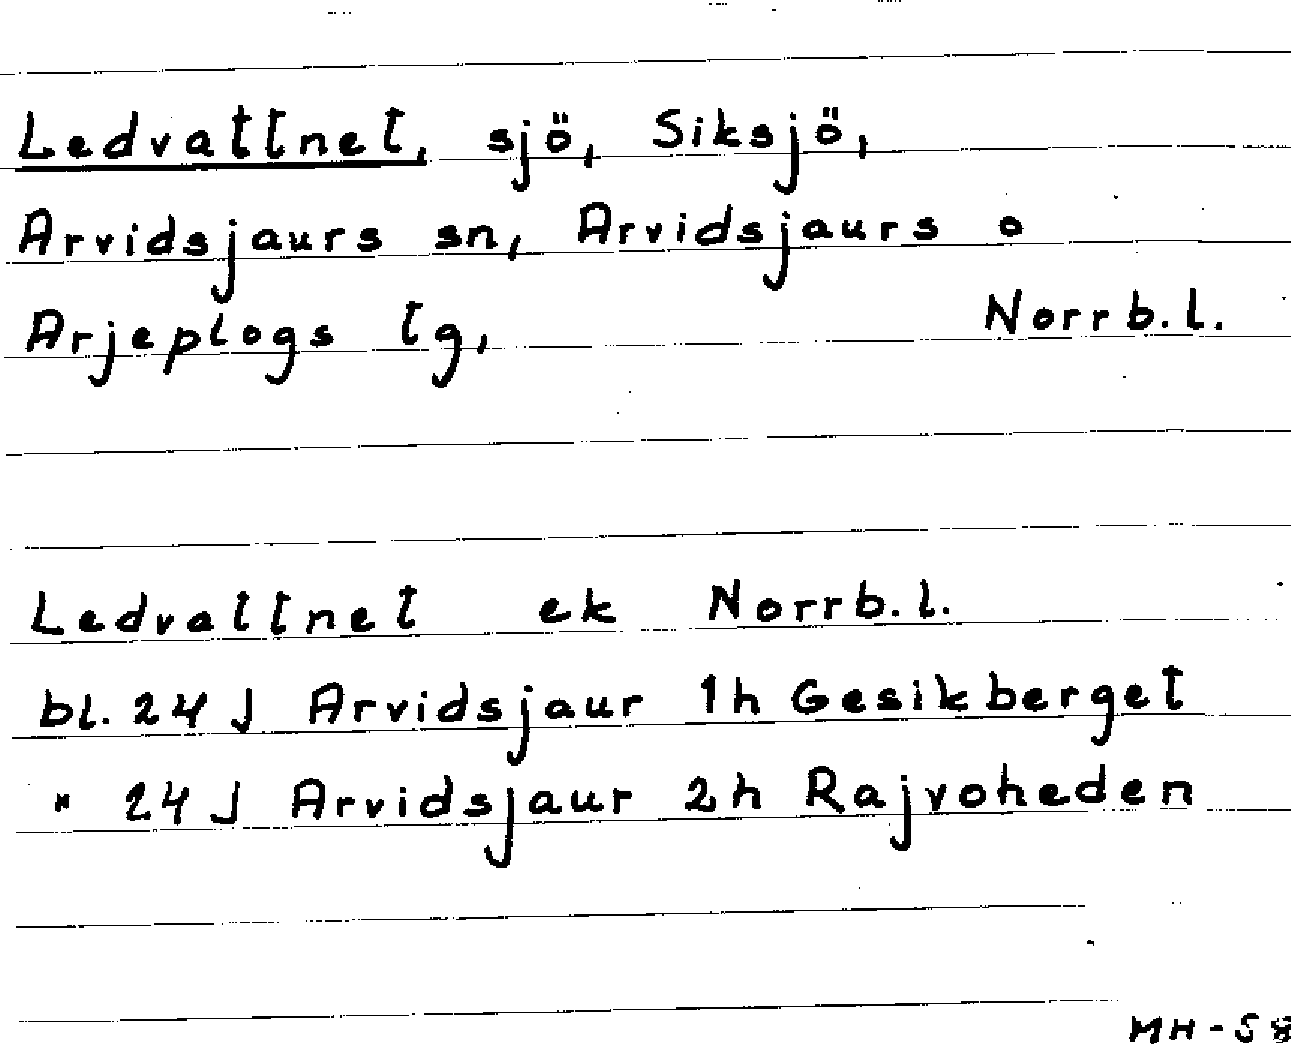 Ledvattnet, sjö, Siksjö,
Arvidsjaurs sn, Arvidsjaurs o
Arjeplogs lg,
Norrb.l.
Ledvattnet ek Norrb.l.
bl. 24 J Arvidsjaur 1h Gesikberget
" 24 J Arvidsjaur 2h Rajvoheden
MH-58